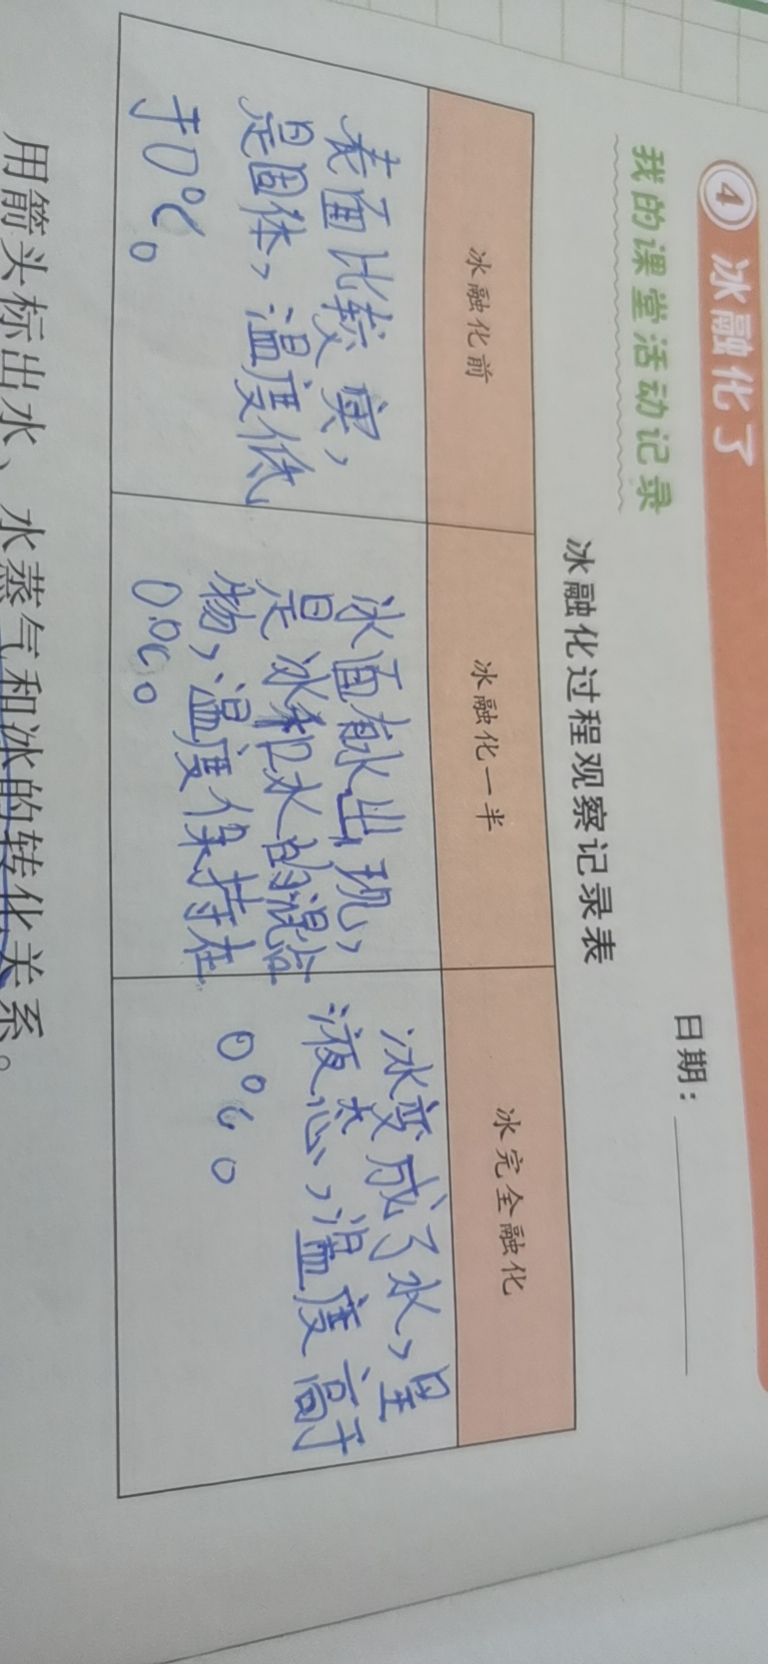 ④ 冰融化了
我的课堂活动记录
日期：
冰融化过程观察记录表
冰融化前
冰融化一半
冰完全融化
表面比较实，
是固体，温度低
于0℃。
冰面有水出现，
是冰和水的混合
物，温度保持在
0℃。
冰变成了水，呈
液态，温度高于
0℃。
用箭头标出水、水蒸气和冰的转化关系。